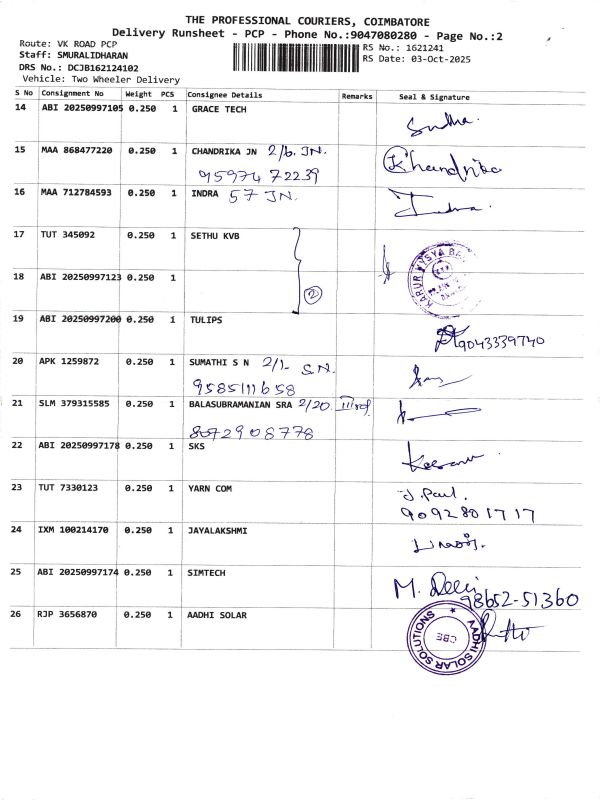 THE PROFESSIONAL COURIERS, COIMBATORE
Delivery Runsheet - PCP - Phone No.:9047080280 - Page No.:2
Route: VK ROAD PCP
Staff: SMURALIDHARAN
DRS No.: DCJB162124102
Vehicle: Two Wheeler Delivery
RS No.: 1621241
RS Date: 03-Oct-2025
S No Consignment No Weight PCS Consignee Details Remarks Seal & Signature
14 ABI 20250997105 0.250 1 GRACE TECH Sudha.
15 MAA 868477220 0.250 1 CHANDRIKA JN 2/6. JN. Khandrika
95974 72239
16 MAA 712784593 0.250 1 INDRA 57 JN. Indra.
17 TUT 345092 0.250 1 SETHU KVB
KARUR VYSYA
18 ABI 20250997123 0.250 1 2
19 ABI 20250997200 0.250 1 TULIPS 9043339740
20 APK 1259872 0.250 1 SUMATHI S N 2/1- S.N.
9585111658
21 SLM 379315585 0.250 1 BALASUBRAMANIAN SRA 2/20
8072908778
22 ABI 20250997178 0.250 1 SKS
23 TUT 7330123 0.250 1 YARN COM J. Paul.
9092801717
24 IXM 100214170 0.250 1 JAYALAKSHMI
25 ABI 20250997174 0.250 1 SIMTECH M. 
98652-51360
26 RJP 3656870 0.250 1 AADHI SOLAR
AADHI SOLAR SOLUTIONS
CBE